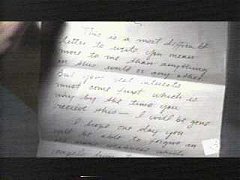 This is a most difficult
letter to write you mean
more to me than anything
in this world or any other
But your best interests
must come first which is
why by the time you
receive this — I will be gone
I hope one day you
will be able to forgive an